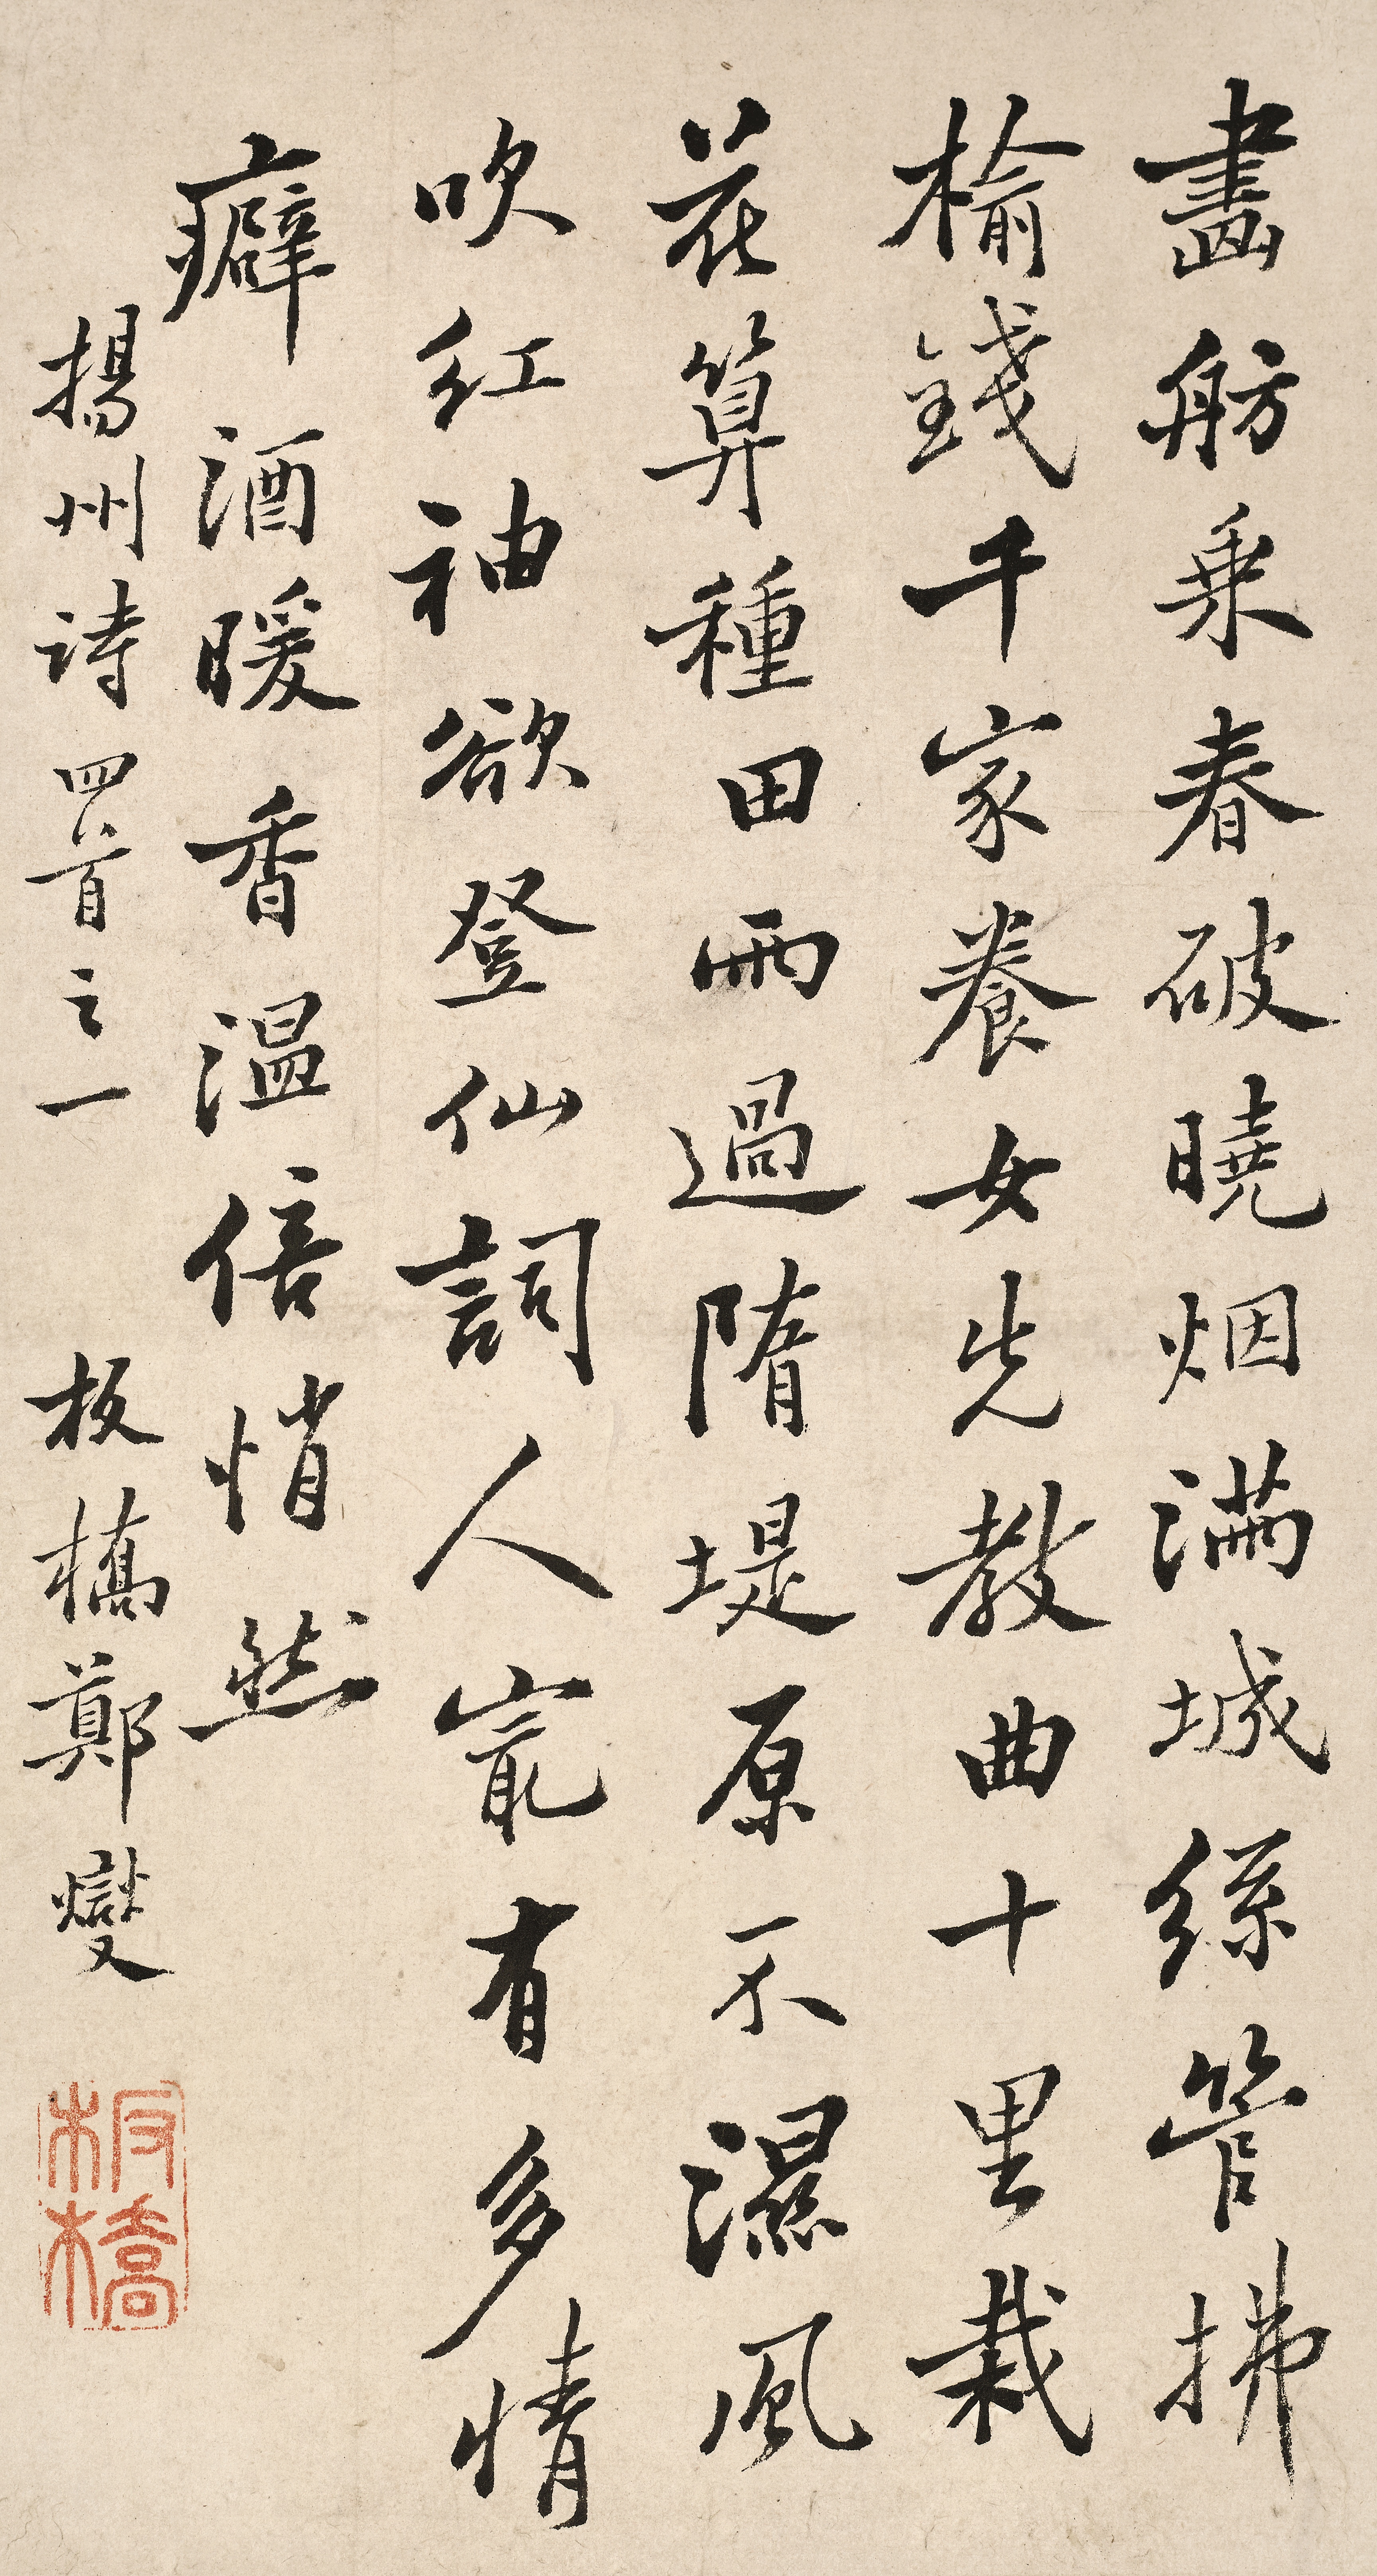 畫舫乗春破曉烟滿城絲管拂
榆錢千家養女先教曲十里栽
花算種田雨過隋堤原不濕風
吹紅袖欲登仙詞人㝡有多情
癖酒暖香温倍悄然
揚州詩四首之一 板橋鄭燮
板橋